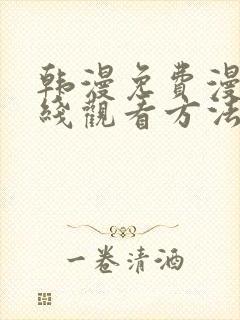 韩漫免費漫
綫觀看方法
一卷清酒